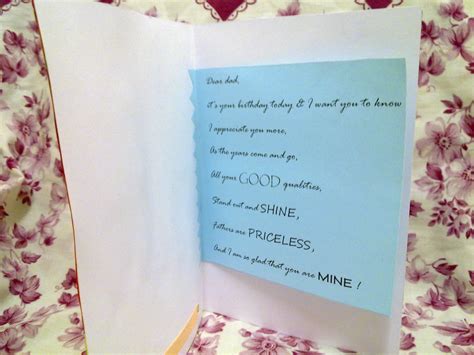 Dear dad,
it's your birthday today & I want you to know
I appreciate you more,
As the years come and go,
All your GOOD qualities,
Stand out and SHINE,
Fathers are PRICELESS,
And I am so glad that you are MINE !